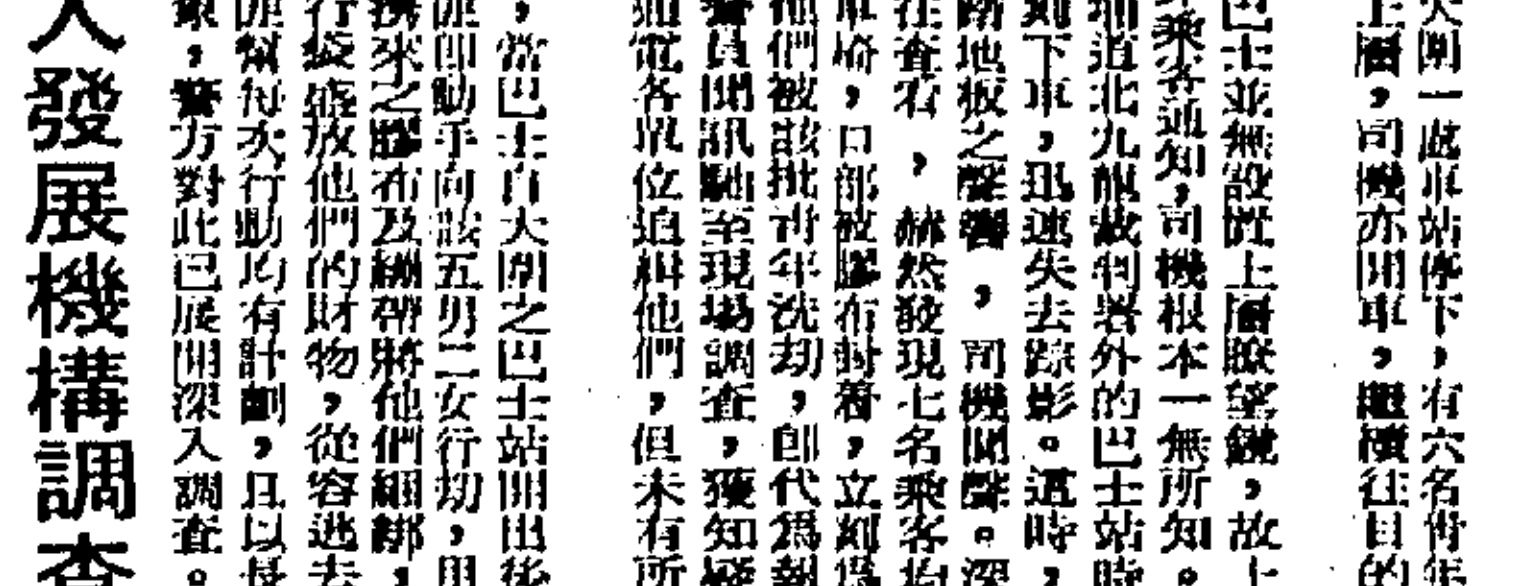 大圍一處車站停下，有六名青年
上層，司機亦開車，繼續往目的
巴士並無設置上層瞭望鏡，故上
乘客通知，司機根本一無所知。
埔道北九龍裁判署外的巴士站時
刻下車，迅速失去踪影。這時，
踏地板之聲響，司機聞聲。深
往查看，赫然發現七名乘客均
車椅，口部被膠布封着，立刻爲
他們被該批青年洗劫，卽代爲報
警員聞訊馳至現場調查，獲知
電各單位追緝他們，但未有所
，當巴士自大圍之巴士站開出後
卽動手向該五男二女行刼，用
攜來之膠布及綳帶將他們綑綁，
行裝盛放他們的財物，從容逃去
幫每次行動均有計劃，且以長
，警方對此已展開深入調查。
人發展機構調查